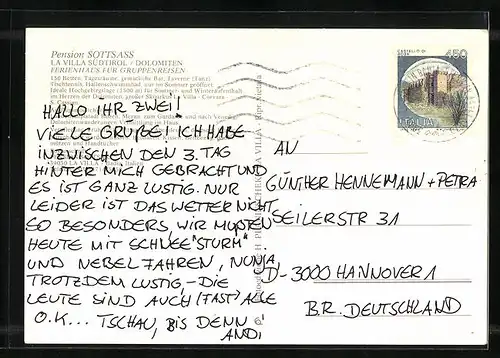 Pension SOTTSASS
LA VILLA SÜDTIROL / DOLOMITEN
FERIENHAUS FÜR GRUPPENREISEN
HALLO IHR ZWEI!
VIELE GRÜßE! ICH HABE
INZWISCHEN DEN 3. TAG
HINTER MICH GEBRACHT UND
ES IST GANZ LUSTIG. NUR
LEIDER IST DAS WETTER NICHT
SO BESONDERS, WIR MUßTEN
HEUTE MIT SCHNEE"STURM"
UND NEBEL FAHREN, NUNJA,
TROTZDEM LUSTIG - DIE
LEUTE SIND AUCH (FAST) ALLE
O.K... TSCHAU, BIS DENN
ANDI
450
ITALIA
AN
GÜNTHER HENNEMANN + PETRA
SEILERSTR 31
D-3000 HANNOVER 1
B.R. DEUTSCHLAND